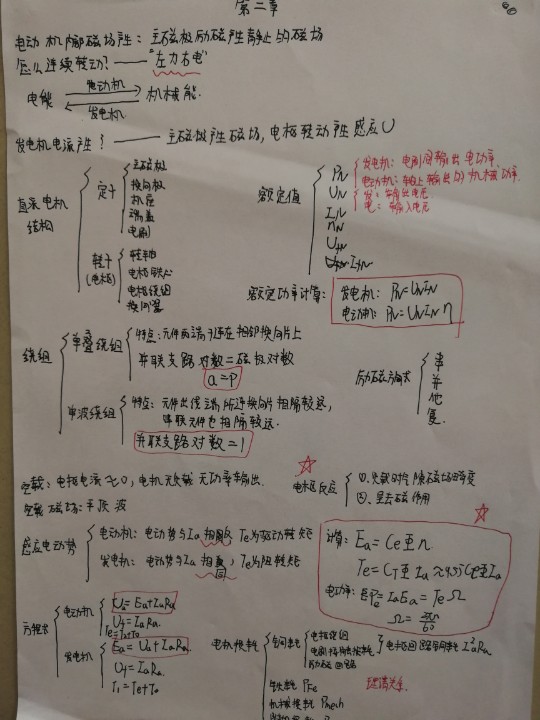 第二章
电动机内部磁场产生：主磁极励磁产生静止的磁场
怎么连续转动？——"左力右电"
电能 电动机 发电机 机械能.
发电机电流产生？——主磁极产生磁场，电枢转动产生感应U
直流电机结构
定子
主磁极
换向极
机座
端盖
电刷
转子(电枢)
转轴
电枢铁心
电枢绕组
换向器
额定值
PN
发电机：电刷间输出电功率
电动机：轴上输出的机械功率
UN
发：输出电压
电：输入电压
IN
nN
UfN
IfN
额定功率计算：
发电机：PN=UNIN
电动机：PN=UNIN η
绕组
单叠绕组
特点：元件两端子连在相邻换向片上
并联支路对数=磁极对数
a=P
单波绕组
特点：元件出线端所连换向片相隔较远，
串联元件也相隔较远.
并联支路对数=1
励磁方式
串
并
他
复.
空载：电枢电流≈0，电机无负载 无功率输出.
空载磁场：平顶波
电枢反应
①.负载时气隙磁场畸变
②.呈去磁作用
感应电动势
电动机：电动势与Ia相反 Te为驱动转矩
发电机：电动势与Ia相同 Te为阻转矩
计算：Ea=CeΦn
Te=CTΦIa≈9.55CeΦIa
电功率：Pe=IaEa=TeΩ
Ω=2πn/60
方程式
电动机
U=Ea+IaRa
Te=T2+T0
发电机
Ea=Ua+IaRa
T1=Te+T0
电机损耗
铜损耗
电枢绕组
电刷接触损耗
励磁回路
电枢回路铜耗 Ia²Ra
铁损耗 PFe
机械损耗 Pmech